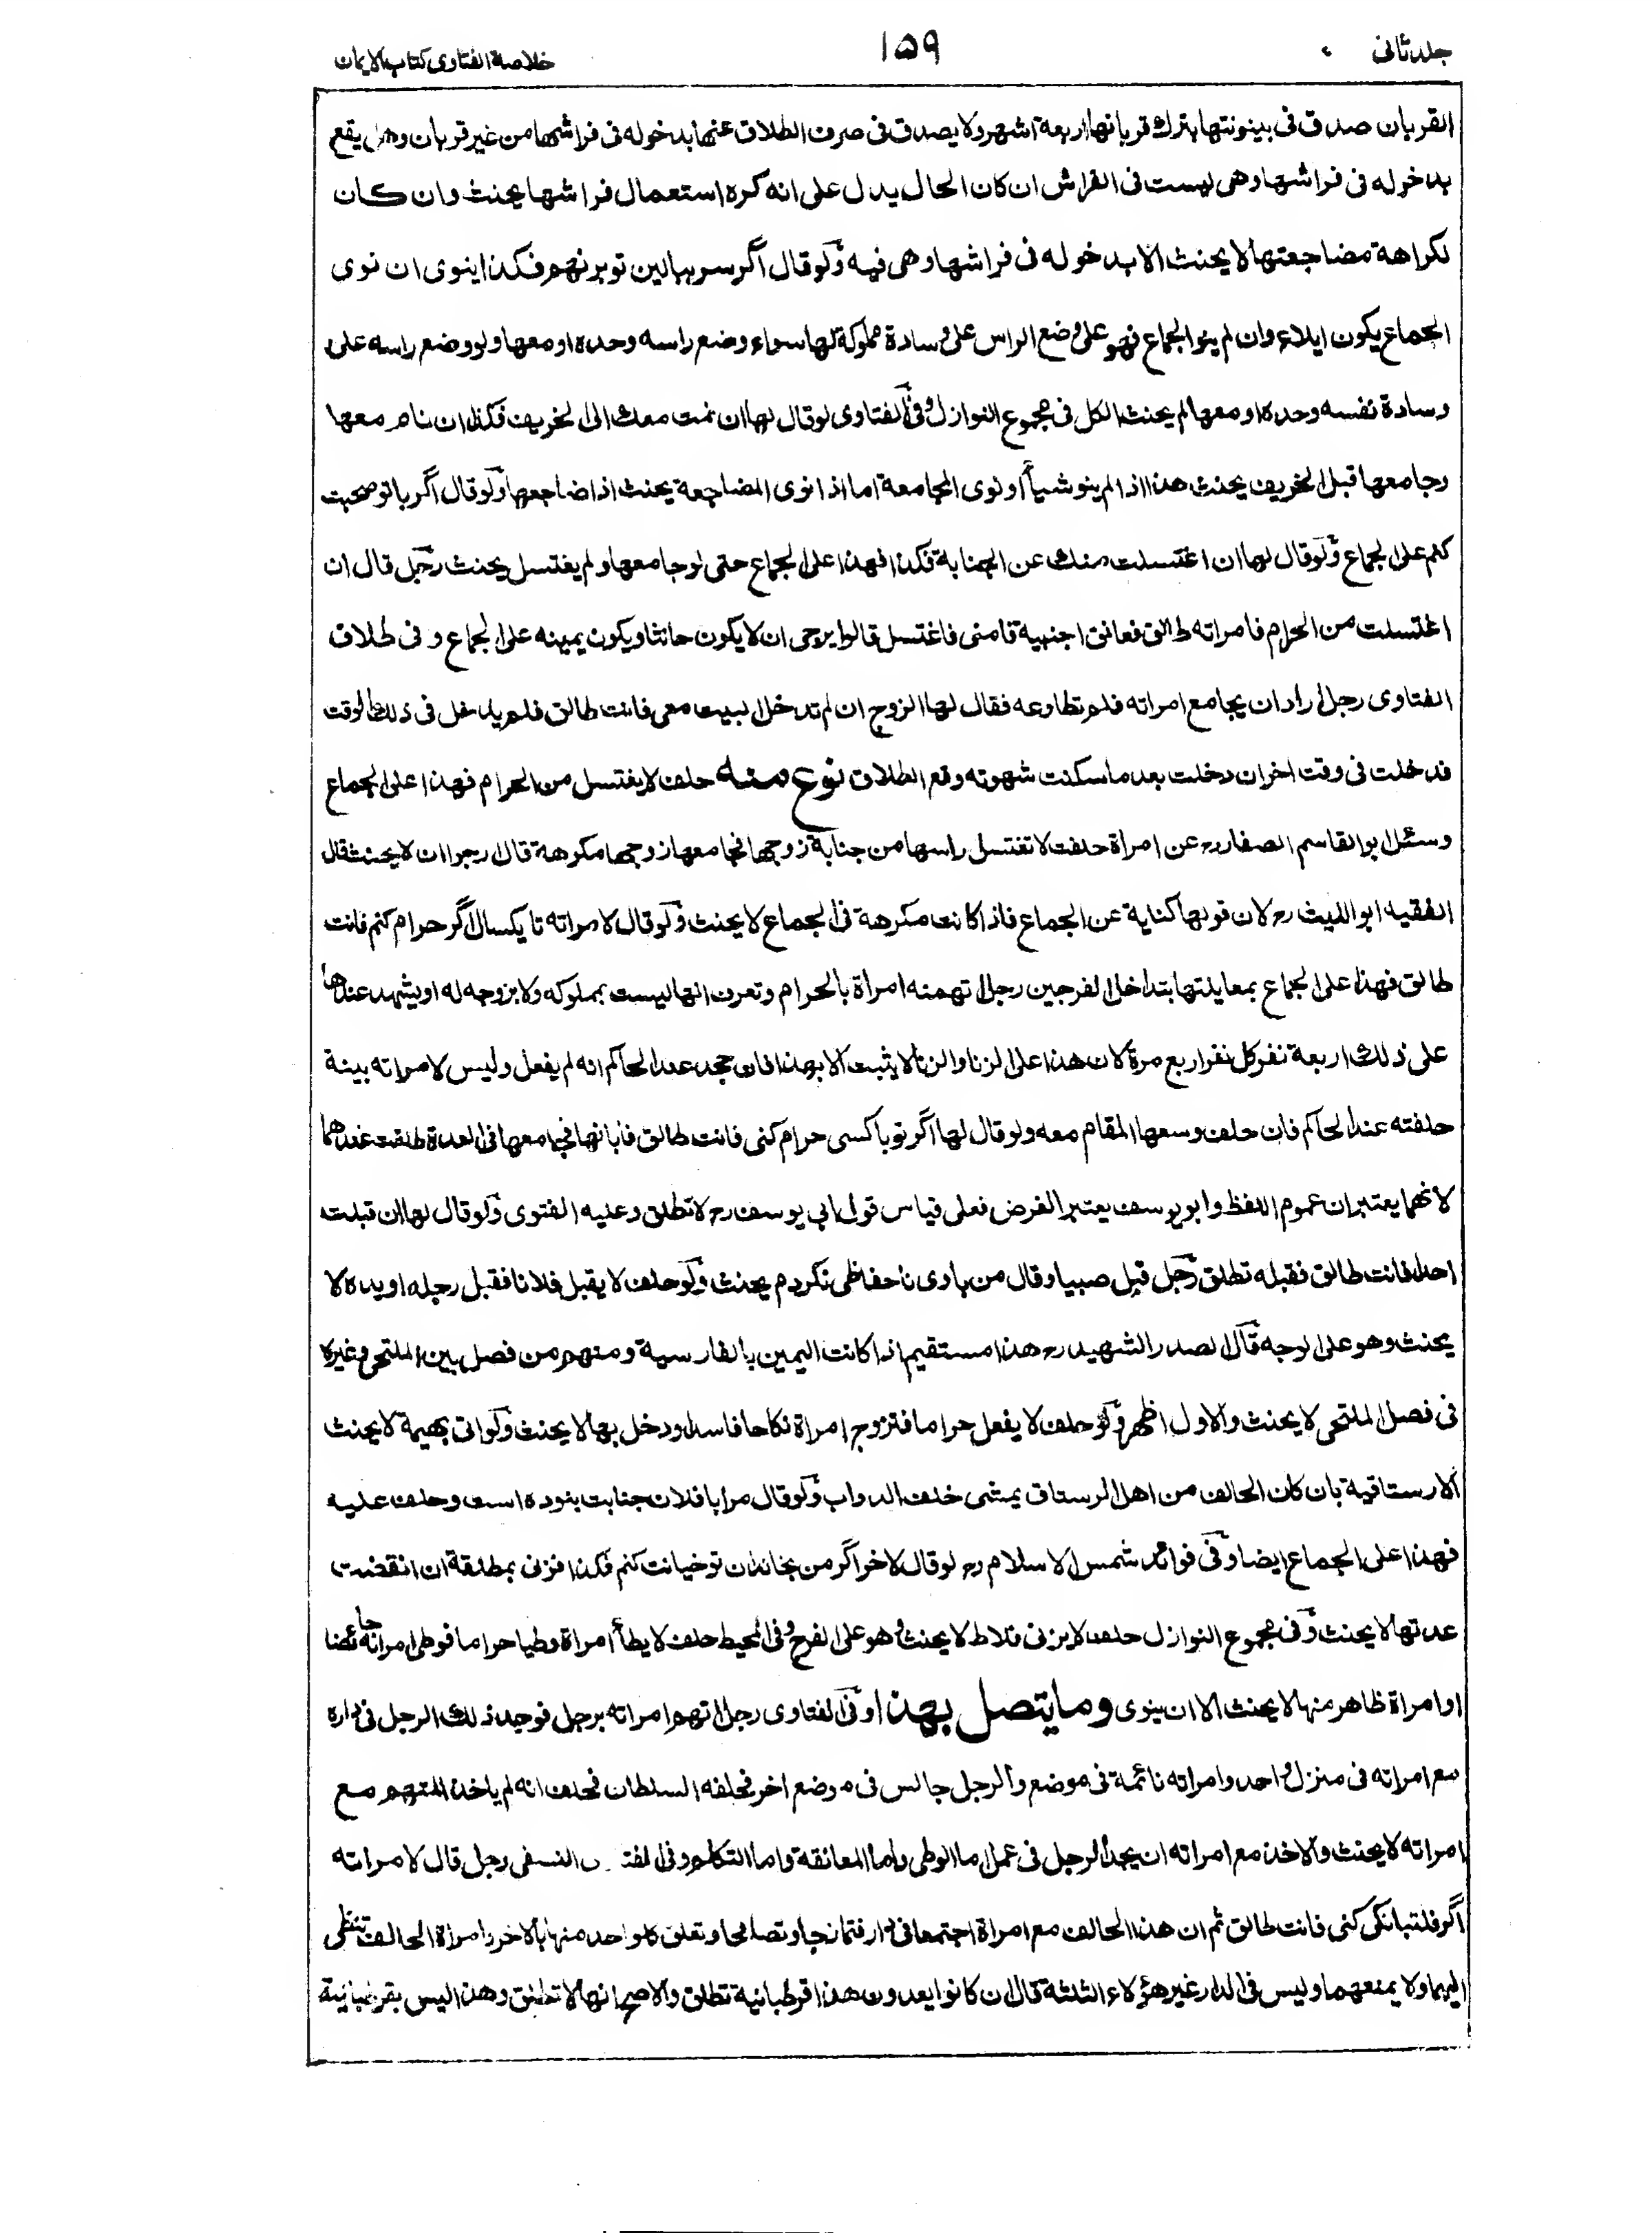 جلد ثانی
۱۵۹
خلاصة الفتاوی کتاب الایمان
القربان صدق فی بینونتها بترك قربانها اربعة اشهر ولا یصدق فی صرف الطلاق عنها بدخوله فی فراشها من غیر قربان وهل یقع
بدخوله فی فراشها وهی لیست فی الفراش ان کان الحال یدل علی انه کره استعمال فراشها یحنث وان کان
لکراهة مضاجعتها لا یحنث الا بدخوله فی فراشها وهی فیه ولو قال اگر سر ببالین تو بر نهم فکذا ینوی ان نوی
الجماع یکون ایلاء وان لم ینو الجماع فهو علی وضع الراس علی وسادة مملوکة لها سواء وضع راسه وحده او معها ولو وضع راسه علی
وسادة نفسه وحده او معها لم یحنث الکل فی مجموع النوازل وفی الفتاوی لو قال لها ان نمت معك الی الخریف فکذا ان نام معها
وجامعها قبل الخریف یحنث هذا اذا لم ینو شیأ او نوی المجامعة اما اذا نوی المضاجعة یحنث اذا ضاجعها ولو قال اگر با تو صحبت
کنم علی الجماع ولو قال لها ان اغتسلت منك عن الجنابة فکذا فهذا علی الجماع حتی لو جامعها ولم یغتسل یحنث رجل قال ان
اغتسلت من الحرام فامراته طالق فعانق اجنبیة فامنی فاغتسل قالوا یرجی ان لا یکون حانثا ویکون یمینه علی الجماع وفی طلاق
الفتاوی رجل اراد ان یجامع امراته فلم تطاوعه فقال لها الزوج ان لم تدخل البیت معی فانت طالق فلم یدخل فی ذلك الوقت
فدخلت فی وقت اخر ان دخلت بعد ما سکنت شهوته وقع الطلاق نوع منه حلف لا یغتسل من الحرام فهذا علی الجماع
وسئل ابو القاسم الصفار رہ عن امراة حلفت لا تغتسل راسها من جنابة زوجها فجامعها زوجها مکرهة قال ارجو ان لا یحنث قال
الفقیه ابو اللیث رہ لان قولها کنایة عن الجماع فاذا کانت مکرهة فی الجماع لا یحنث ولو قال لامراته تا یکسال اگر حرام کنم فانت
طالق فهذا علی الجماع بمعاینتها بتداخل الفرجین رجل اتهمته امراة بالحرام وتعرف انها لیست بمملوکه ولا بزوجه له او یشهد عندها
علی ذلك اربعة نفر کل نفر اربع مرة لان هذا علی الزنا والزنا لا یثبت الا بهذا فان جحد عند الحاکم انه لم یفعل ولیس لامراته بینة
حلفته عند الحاکم فان حلف وسعها المقام معه ولو قال لها اگر تو با کسی حرام کنی فانت طالق فابانها فجامعها فی العدة طلقت عندهما
لانهما یعتبران عموم اللفظ وابو یوسف یعتبر الغرض فعلی قیاس قول ابی یوسف رہ لا تطلق وعلیه الفتوی ولو قال لها ان قبلت
احدا فانت طالق فقبله تطلق رجل قبل صبیا وقال من باوی ناحفاظی نکردم یحنث ولو حلف لا یقبل فلانا فقبل رجله او یده لا
یحنث وهو علی الوجه قال الصدر الشهید رہ هذا مستقیم اذا کانت الیمین بالفارسیة ومنهم من فصل بین الملتحی وغیره
فی فصل الملتحی لا یحنث والاول اظهر ولو حلف لا یفعل حراما فتزوج امراة نکاحا فاسدا ودخل بها لا یحنث ولو اتی بهیمة لا یحنث
الا رستاقیة بان کان الحالف من اهل الرستاق یمشی خلف الدواب ولو قال مرا با فلان جنابت بنوده است وحلف علیه
فهذا علی الجماع ایضا وفی فوائد شمس الاسلام رہ لو قال لاخر اگر من بخاندان تو خیانت کنم فکذا فزنی بمطلقة ان انقضت
عدتها لا یحنث وفی مجموع النوازل حلف لا یزنی فلاط لا یحنث وهو علی الفرج وفی المحیط حلف لا یطأ امراة وطیا حراما فوطی امراته حائضا
او امراة ظاهر منها لا یحنث الا ان ینوی وما یتصل بهذا وفی الفتاوی رجل اتهم امراته برجل فوجد ذلك الرجل فی داره
مع امراته فی منزل واحد وامراته نائمة فی موضع والرجل جالس فی موضع اخر فحلفه السلطان فحلف انه لم یاخذ المتهم مع
امراته لا یحنث والاخذ مع امراته ان یجد الرجل فی عمل اما الوطی واما المعانقة واما التکلم وفی النسفی رجل قال لامراته
اگر قلتبانکی کنی فانت طالق ثم ان هذا الحالف مع امراة اجتمعا فی دار فتمازجا وتصافحا وتعلق کل واحد منهما بالاخر وامراة الحالف تنظر
الیهما ولا یمنعهما ولیس فی الدار غیر هؤلاء الثلثة قال ان کانوا یعدون هذا قرطبانیة تطلق والاصح انها لا تطلق وهذا لیس بقرطبانیة